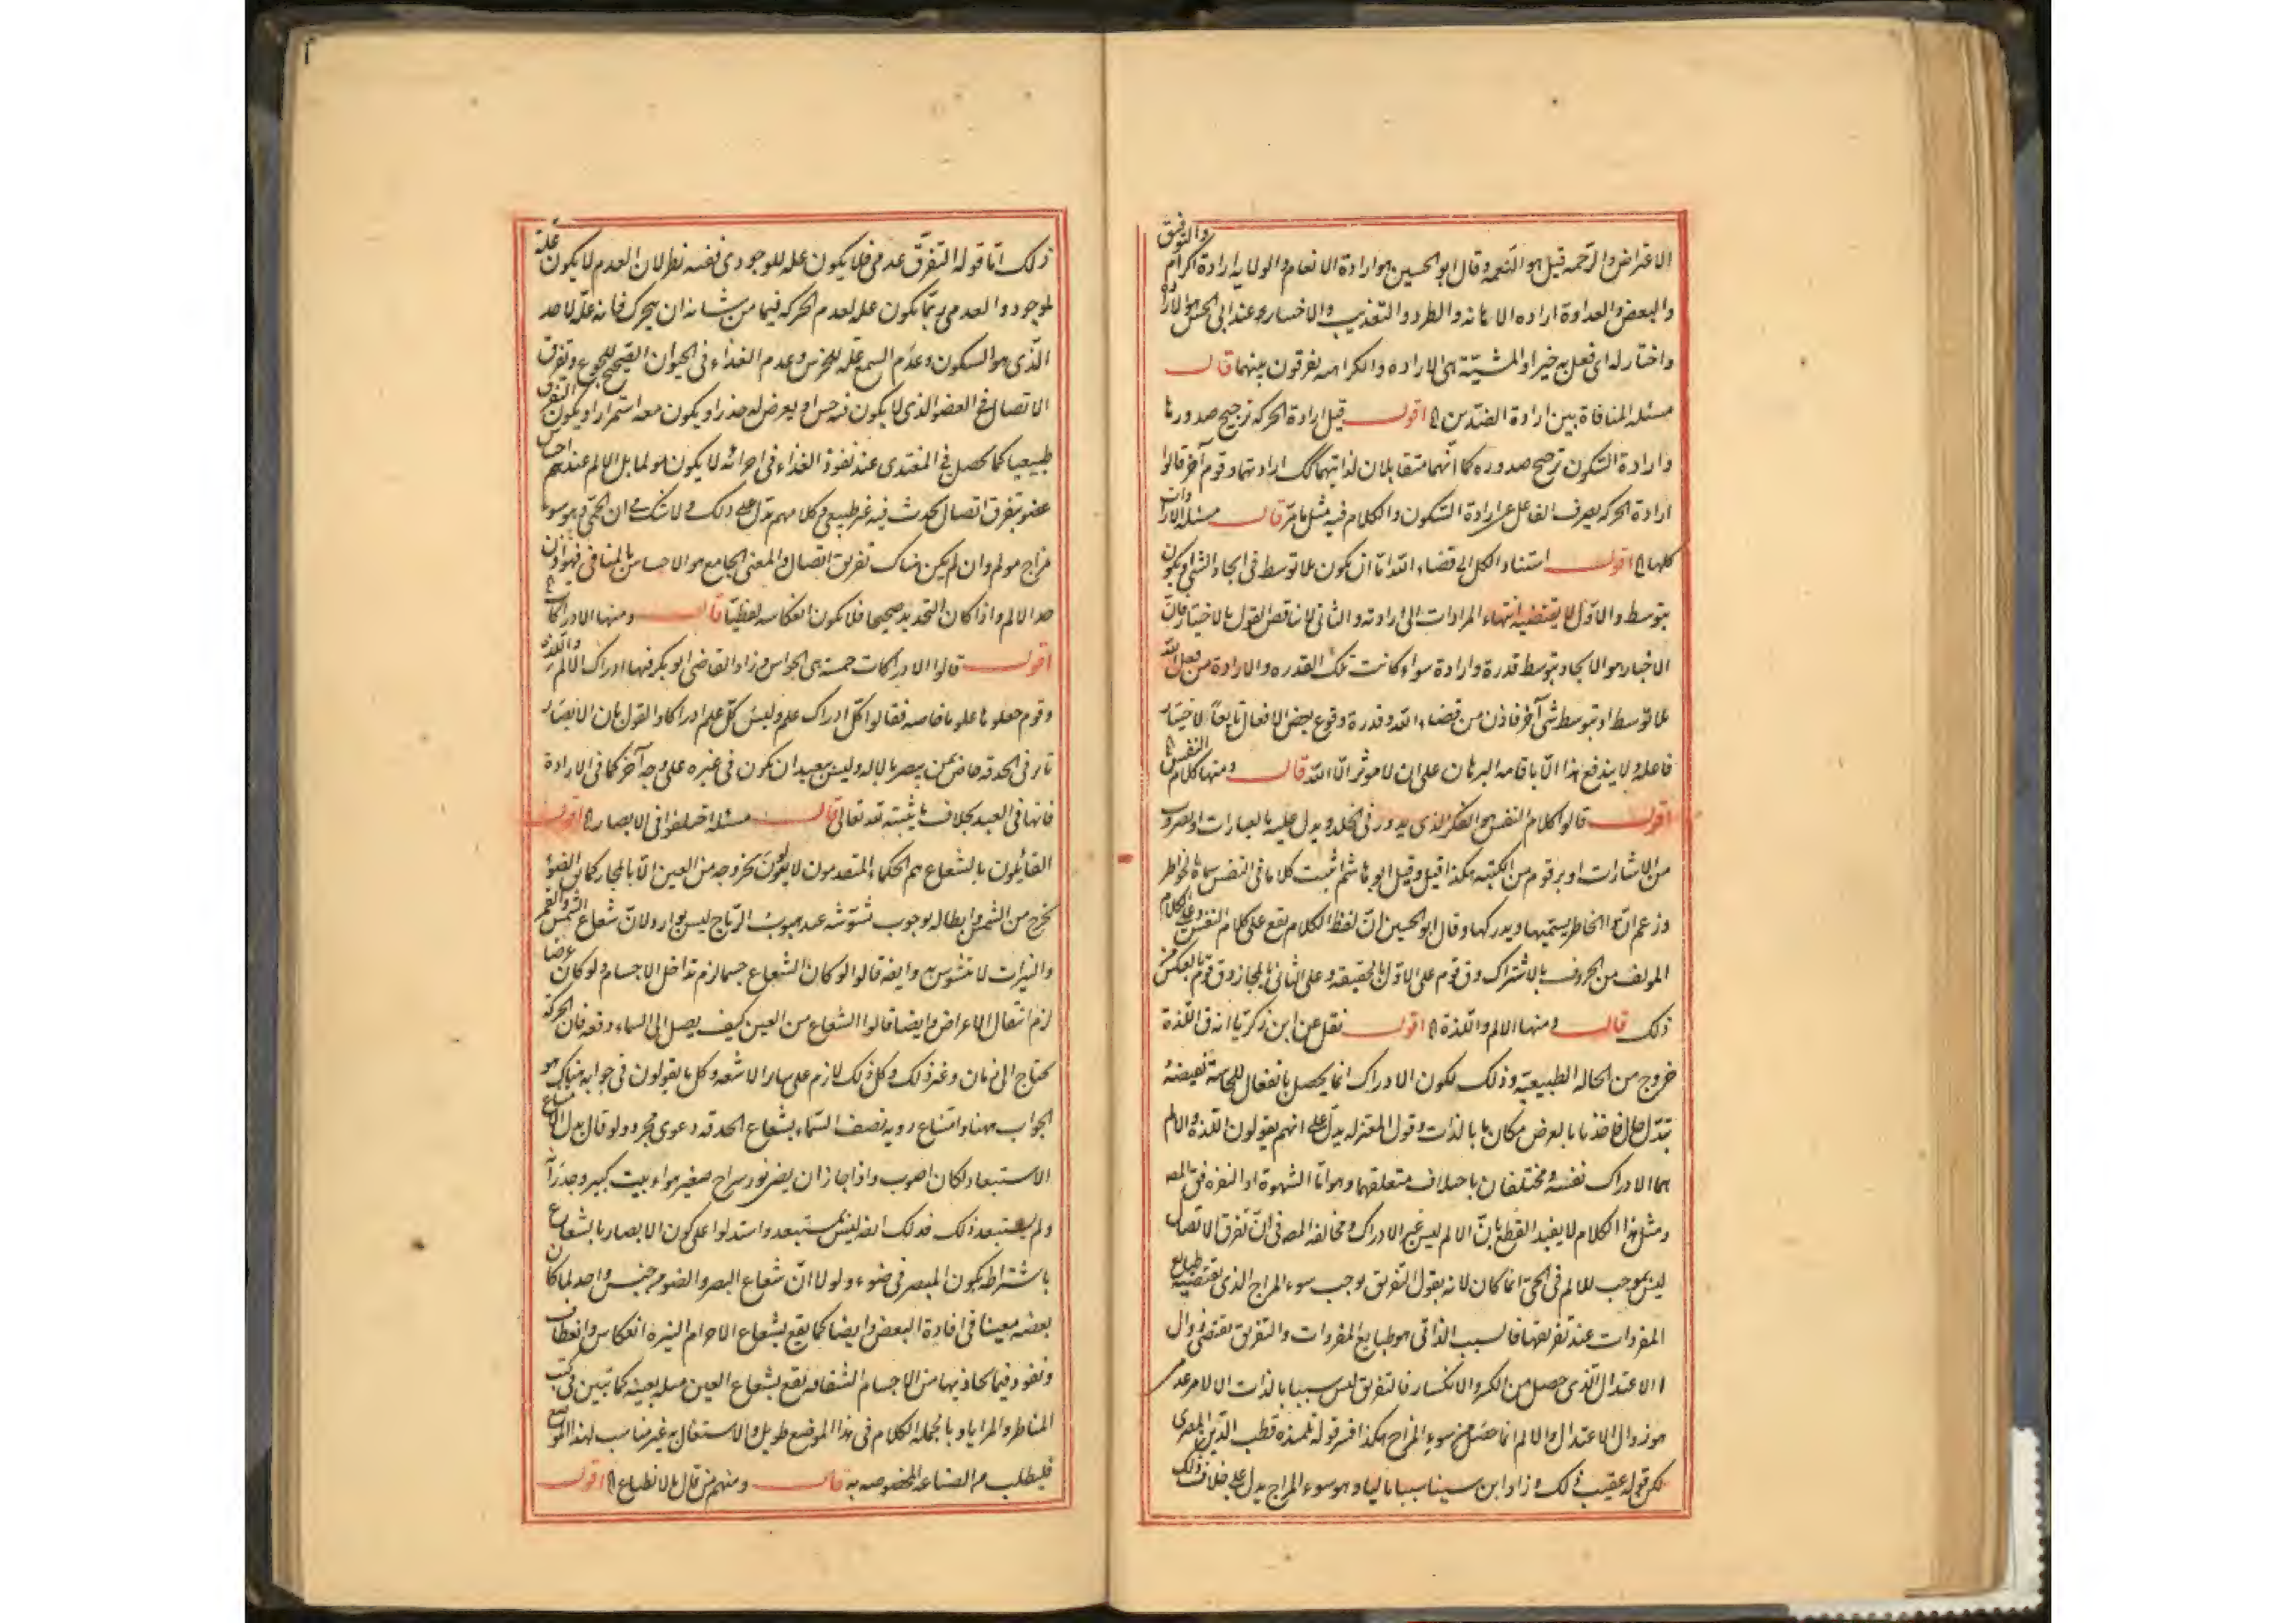 الاعتراض والرحمه قيل هو النعمه وقال ابو الحسين هو ارادة الانعام والولايه ارادة اكرام والتوفيق
والبغض والعداوة اراده الاهانه والطرد والتعذيب والاختيار عند ابي الحسن هو الاراده
واختار له اى فعل به خيرا والمشيّة هى الاراده والكراميه يفرقون بينهما قال
مسئله المنافاة بين ارادة الضدّين اقول قيل ارادة الحركه ترجيح صدورها
وارادة السكون ترجيح صدوره كما انّهما متقابلان لذاتيهما كك ارادتهما وقوم آخر قالوا
ارادة الحركه يصرف الفاعل عن ارادة السكون والكلام فيه مثل ما مرّ قال مسئله الارادات
كلها اقول استناد الكل الى قضاء الله اما ان يكون بلا توسط فى ايجاد الشئ او يكون
بتوسط والاوّل لا يقتضيه انتهاء المرادات الى ارادته والثانى لا يناقض القول بالاختيار فانّ
الاختيار هو الايجاد بتوسط قدرة وارادة سواء كانت تلك القدره والارادة من فعل الله
بلا توسط او بتوسط شئ آخر فاذن من قضاء الله وقدرة وقوع بعض الافعال تابعاً لاختيار
فاعله ولا يندفع هذا الّا باقامه البرهان على ان لا موثر الّا الله قال ومنها كلام النفس
اقول قالوا كلام النفس هو الفكر الذى يدور فى الخلد ويدل عليه بالعبارات او بضروب
من الاشارات او برقوم من الكتبه هكذا قيل وقيل ابو هاشم اثبت كلاما فى النفس سماه الخواطر
وزعم انّ الخاطر يسمّيها ويدركها وقال ابو الحسين انّ لفظ الكلام يقع على كلام النفس وعلى الكلام
المولف من الحروف بالاشتراك وق قوم على الاوّل بالحقيقه وعلى الثانى بالمجاز وق قوم بالعكس من
ذلك قال ومنها الالم واللذة اقول نقل عن ابن زكريا انه ق اللذة
خروج من الحاله الطبيعيّه وذلك لكون الادراك انما يحصل بانفعال للحاسة يقتضيه
تبدّل حال فاخذ ما بالعرض مكان ما بالذات وقول المعتزله يدل على انهم يقولون اللذة والالم
هما الادراك نفسه ومختلفان باختلاف متعلقهما وهو اما الشهوة او النفره
ومثل هذا الكلام لا يفيد القطع بانّ الالم ليس غير الادراك ومخالفه المصـ فى انّ تفرق الاتصال
ليس بموجب للالم فى الحىّ انما كان لانه يقول التفريق يوجب سوء المزاج الذى يقتضيه طبايع
المفردات عند تفريقها فالسبب الذاتى هو طبايع المفردات والتفريق يقتضى زوال
الاعتدال الّذى حصل من الكسر والانكسار فالتفريق ليس سببا بالذات الا لامر عدمى
هو زوال الاعتدال والالم انما حصل من سوء المزاج هكذا فسر قوله تلميذه قطب الدّين المصرى
لكن قوله عقيب ذلك وزاد ابن سينا سببا ثانيا وهو سوء المزاج يدل على خلاف ذلك
ذلك امّا قوله التفرّق عدمى فلا يكون علة للوجودى ففيه نظر لان العدم لا يكون علّة
لموجود والعدمى ربّما يكون علة لعدم الحركه فيما من شانه ان يتحرك فانه علّة لا ضد
الّذى هو السكون وعدم السمع علّه للخرس وعدم الغذاء فى الحيوان الصّحيح للجوع وتفرق
الاتصال فى العضو الذى لا يكون فيه حس او يعرض له خدر او يكون معه استمرار او يكون التفرق
طبيعيا كما يحصل فى المغتدى عند نفوذ الغذاء فى اجزائه لا يكون مولما بل الالم عندهم احساس
عضو بتفرق اتصال يحدث فيه غير طبيعى وكلامهم يدل على ذلك ولا شك فى ان الحمى وهو سوء
مزاج مولم وان لم يكن هناك تفريق اتصال والمعنى الجامع هو الاحساس بالمنافى فهو اذن
حد الالم واذا كان التحديد صحيحا فلا يكون انعكاسه لفظيّا قال ومنها الادراكات
اقول قالوا الادراكات خمسه هى الحواس وزاد القاضى ابو بكر فيها ادراك الالم واللذه
وقوم جعلوها علوما خاصه فقالوا كل ادراك علم وليس كلّ علم ادراكا والقول بان الابصار
تاثر فى الحدقه خاص بمن يبصر بالاله وليس ببعيد ان يكون فى غيره على وجه آخر كما فى الارادة
فانها فى العبد بخلاف ما يثبته لله تعالى قال مسئله اختلفوا فى الابصار اقول
القائلون بالشعاع هم الحكماء المتقدمون لا يقولون بخروجه من العين الّا بالمجاز كما يق الضوء
يخرج من الشمس وابطاله بوجوب تشوّشه عند هبوب الرّياح ليس بوارد لانّ شعاع الشمس والقمر
والنيرات لا يتشوش به وايضه قالوا لو كان الشعاع جسما لزم تداخل الاجسام ولو كان عرضا
لزم انتقال الاعراض وايضا قالوا الشعاع من العين كيف يصل الى السماء دفعه فان الحركة
يحتاج الى زمان وغير ذلك وكل ذلك لازم على ساير الاشعه وكل ما يقولون فى جوابه هناك هو
الجواب ههنا وامتناع رويه نصف السّماء بشعاع الحدقه دعوى مجرد ولو قال بدل الامتناع
الاستبعاد لكان اصوب واذا جاز ان يضئ نور سراج صغير هواء بيت كبير وجدرانه
ولم يستبعد ذلك فذلك ايضه ليس بمستبعد واستدلوا على كون الابصار بالشعاع
باشتراطه بكون المبصر فى ضوء ولولا انّ شعاع البصر والضوء من جنس واحد لما كان
بعضه معينا فى افادة البعض وايضا كما يقع بشعاع الاجرام النيره انعكاس وانعطاف
ونفوذ فيما يحاذيها من الاجسام الشفافه تقع بشعاع العين مثله بعينه كما تبيّن فى كتب
المناظر والمرايا وبالجمله الكلام فى هذا الموضع طويل والاشتغال به غير مناسب لهذا الموضع
فليطلب من الصناعه المخصوصه به قال ومنهم من قال بالانطباع اقول